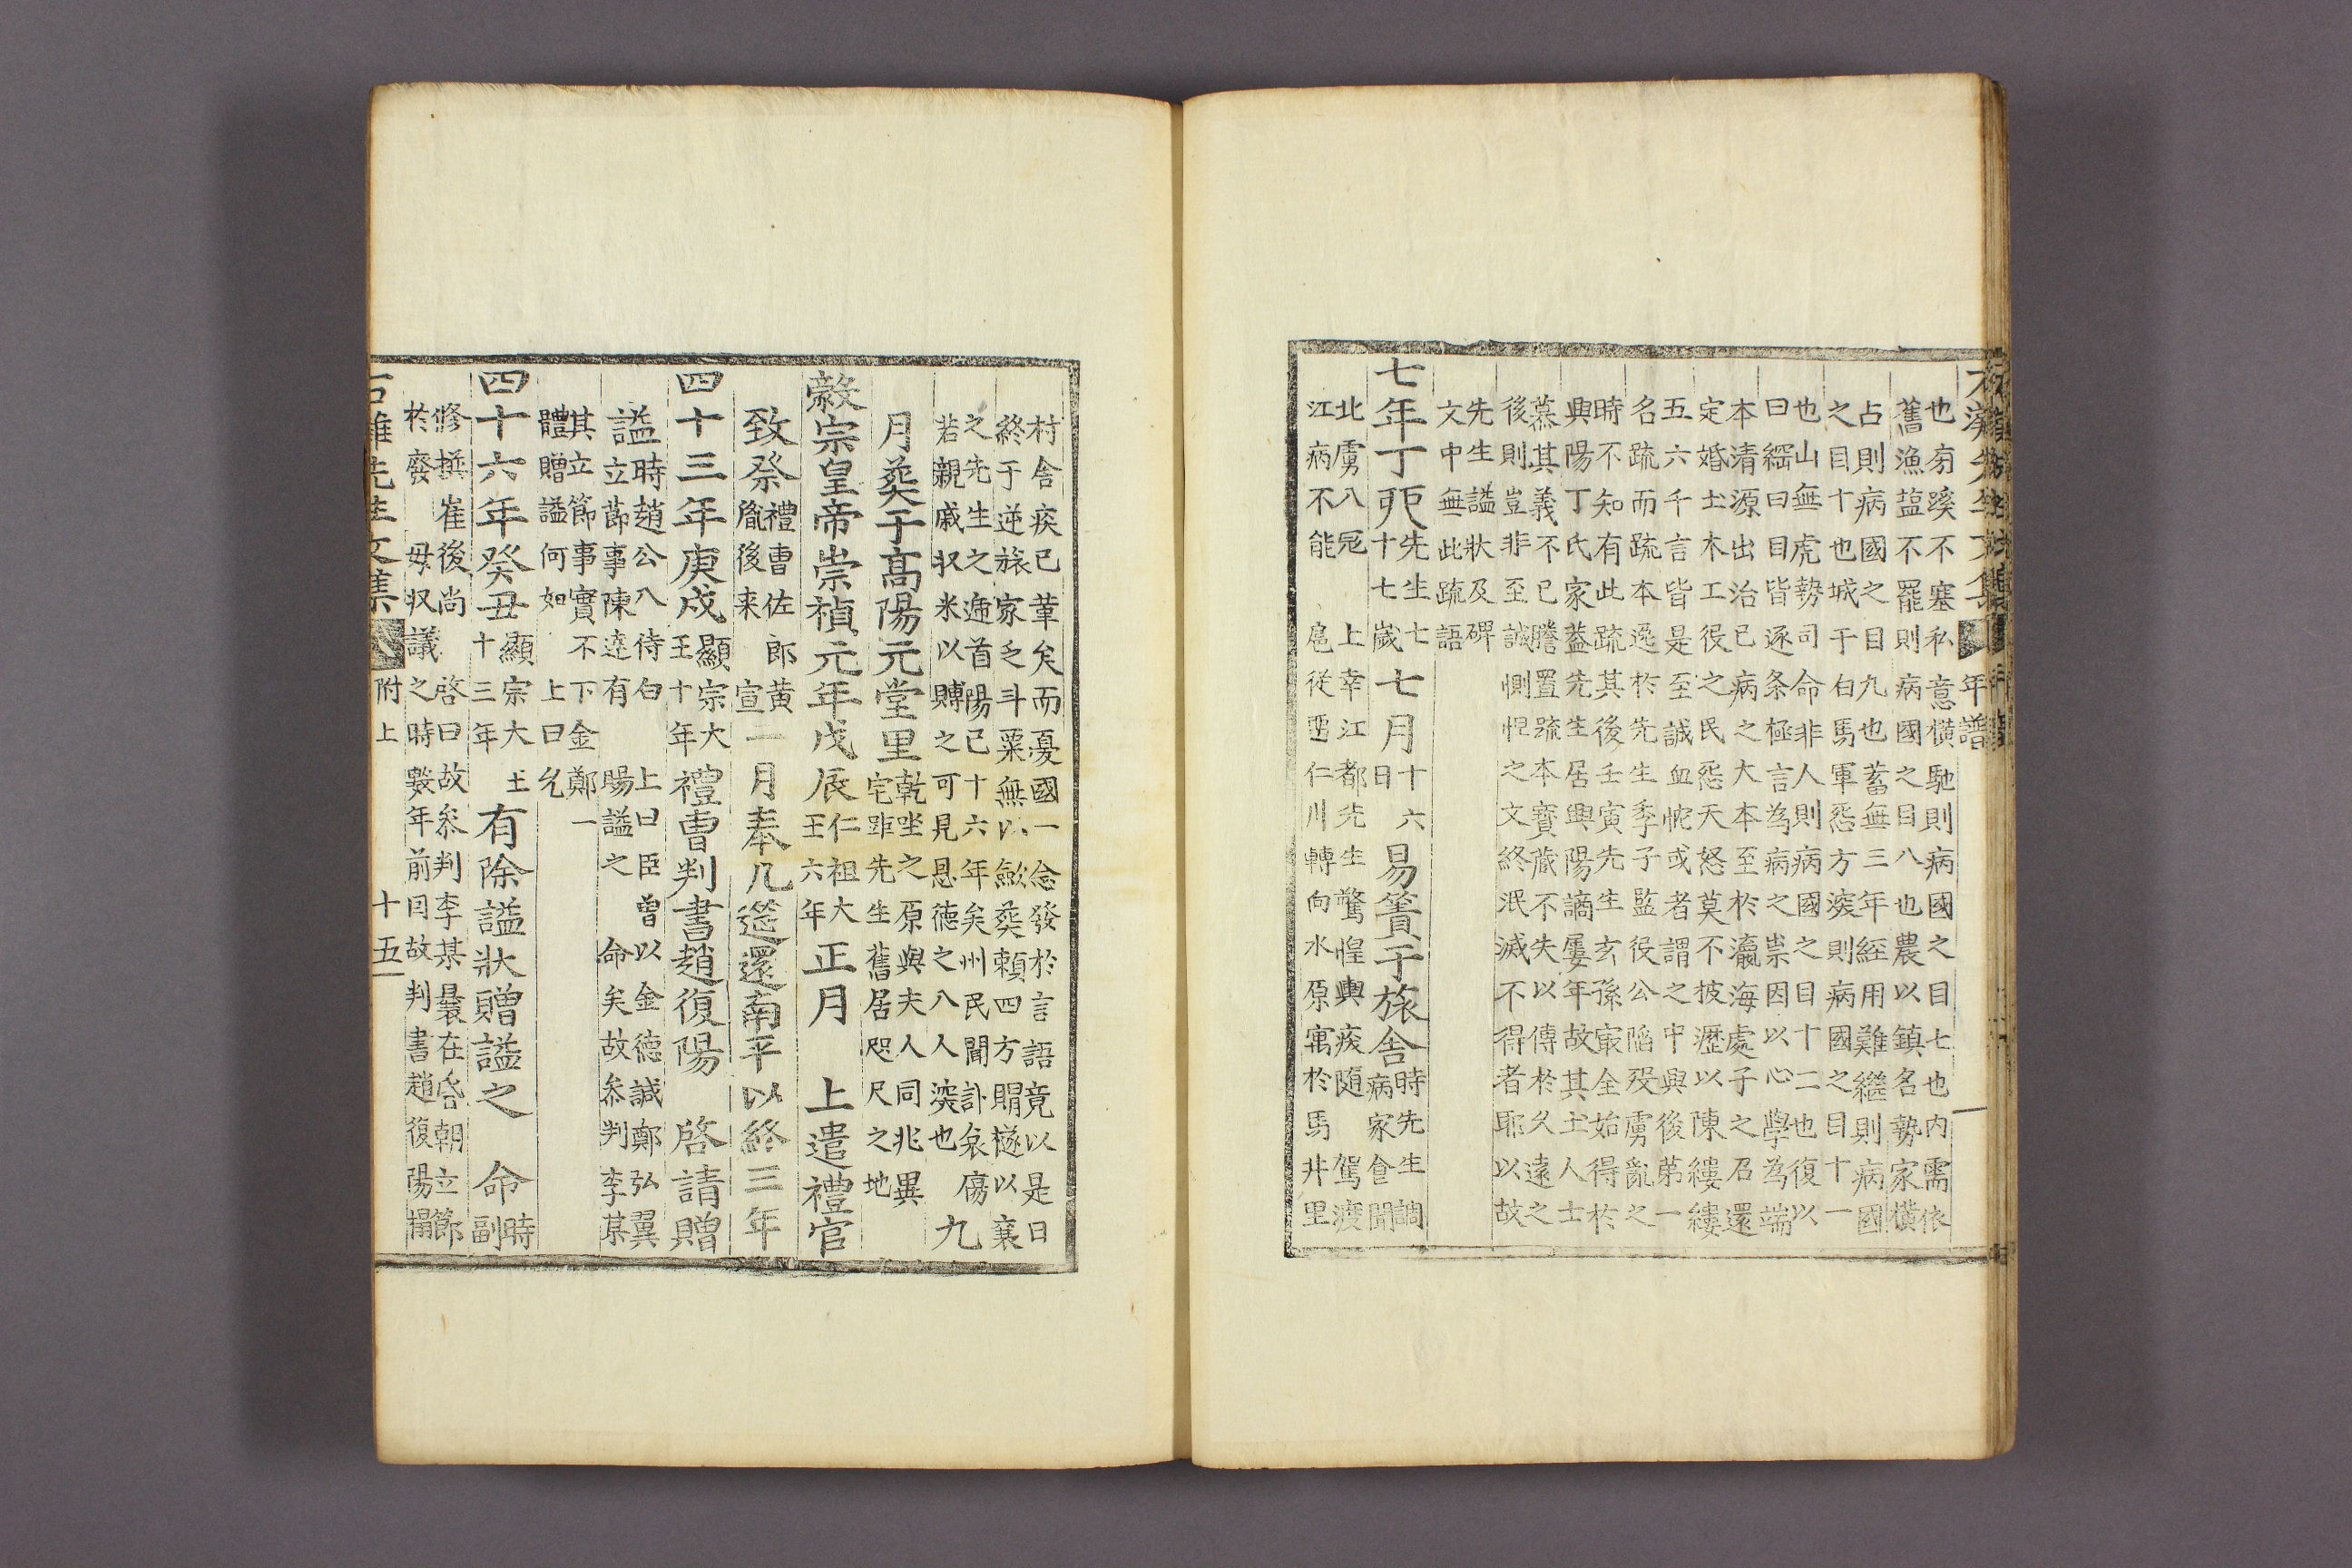 年譜
也旁蹊不塞私意橫馳則病國之目七也內需依
舊漁鹽不罷則病國之目八也農以鎭名勢家橫
占則病國之目九也蓄無三年經用難繼則病國
之目十也城于白馬軍怨方深則病國之目十一
也山無虎勢司命非人則病國之目十二也復以
曰綱曰目皆逐条極言為病之祟因以心學為端
本清源出治已病之大本至於瀛海處子之召還
定婚土木工役之民怨天怒莫不披瀝以陳縷縷
五六千言皆是至誠血忱或者謂之中興後第一
名疏而疏本逸於先生季子監役公陷歿虜亂之
時不知有此疏其後壬寅先生玄孫㝡全始得於
興陽丁氏家蓋先生居興陽謫屢年故其土人士
慕其義不已謄置疏本寶蔵不失以傳於久遠之
後則豈非至誠惻怛之文終泯滅不得者耶以故
先生諡狀及碑
文中無此疏語
七年丁卯先生七十七歲七月十六日易簀于旅舍時先生調病家食聞
北虜入冦　上幸江都先生驚惶輿疾随　駕渡
江病不能　扈從迺仁川轉向水原寓於馬井里
村舍疾已革矣而憂國一念發於言語竟以是日
終于逆旅家乏斗粟無以歛葬頼四方賻襚以襄
之先生之迍首陽已十六年矣州民聞訃哀傷
若親戚収米以賻之可見恩德之入人深也九
月葬于高陽元堂里乾坐之原與夫人同兆異宅距先生舊居咫尺之地
毅宗皇帝崇禎元年戊辰仁祖大王六年正月　上遣禮官
致祭禮曹佐郎黃胤後来宣一月奉几筵還南平以終三年
四十三年庚戌顯宗大王十年禮曹判書趙復陽　啓請贈
諡時趙公入侍白　上曰臣曾以金德諴鄭弘翼
立節事陳達有　賜諡之　命矣故叅判李某
其立節事實不下金鄭一
體贈諡何如　上曰允
四十六年癸丑顯宗大王十三年有除諡狀贈諡之　命時副
修撰崔後尚　啓曰故叅判李某曩在昏朝立節
於廢　母収議之時數年前因故判書趙復陽榻
先生文集
附上
十五